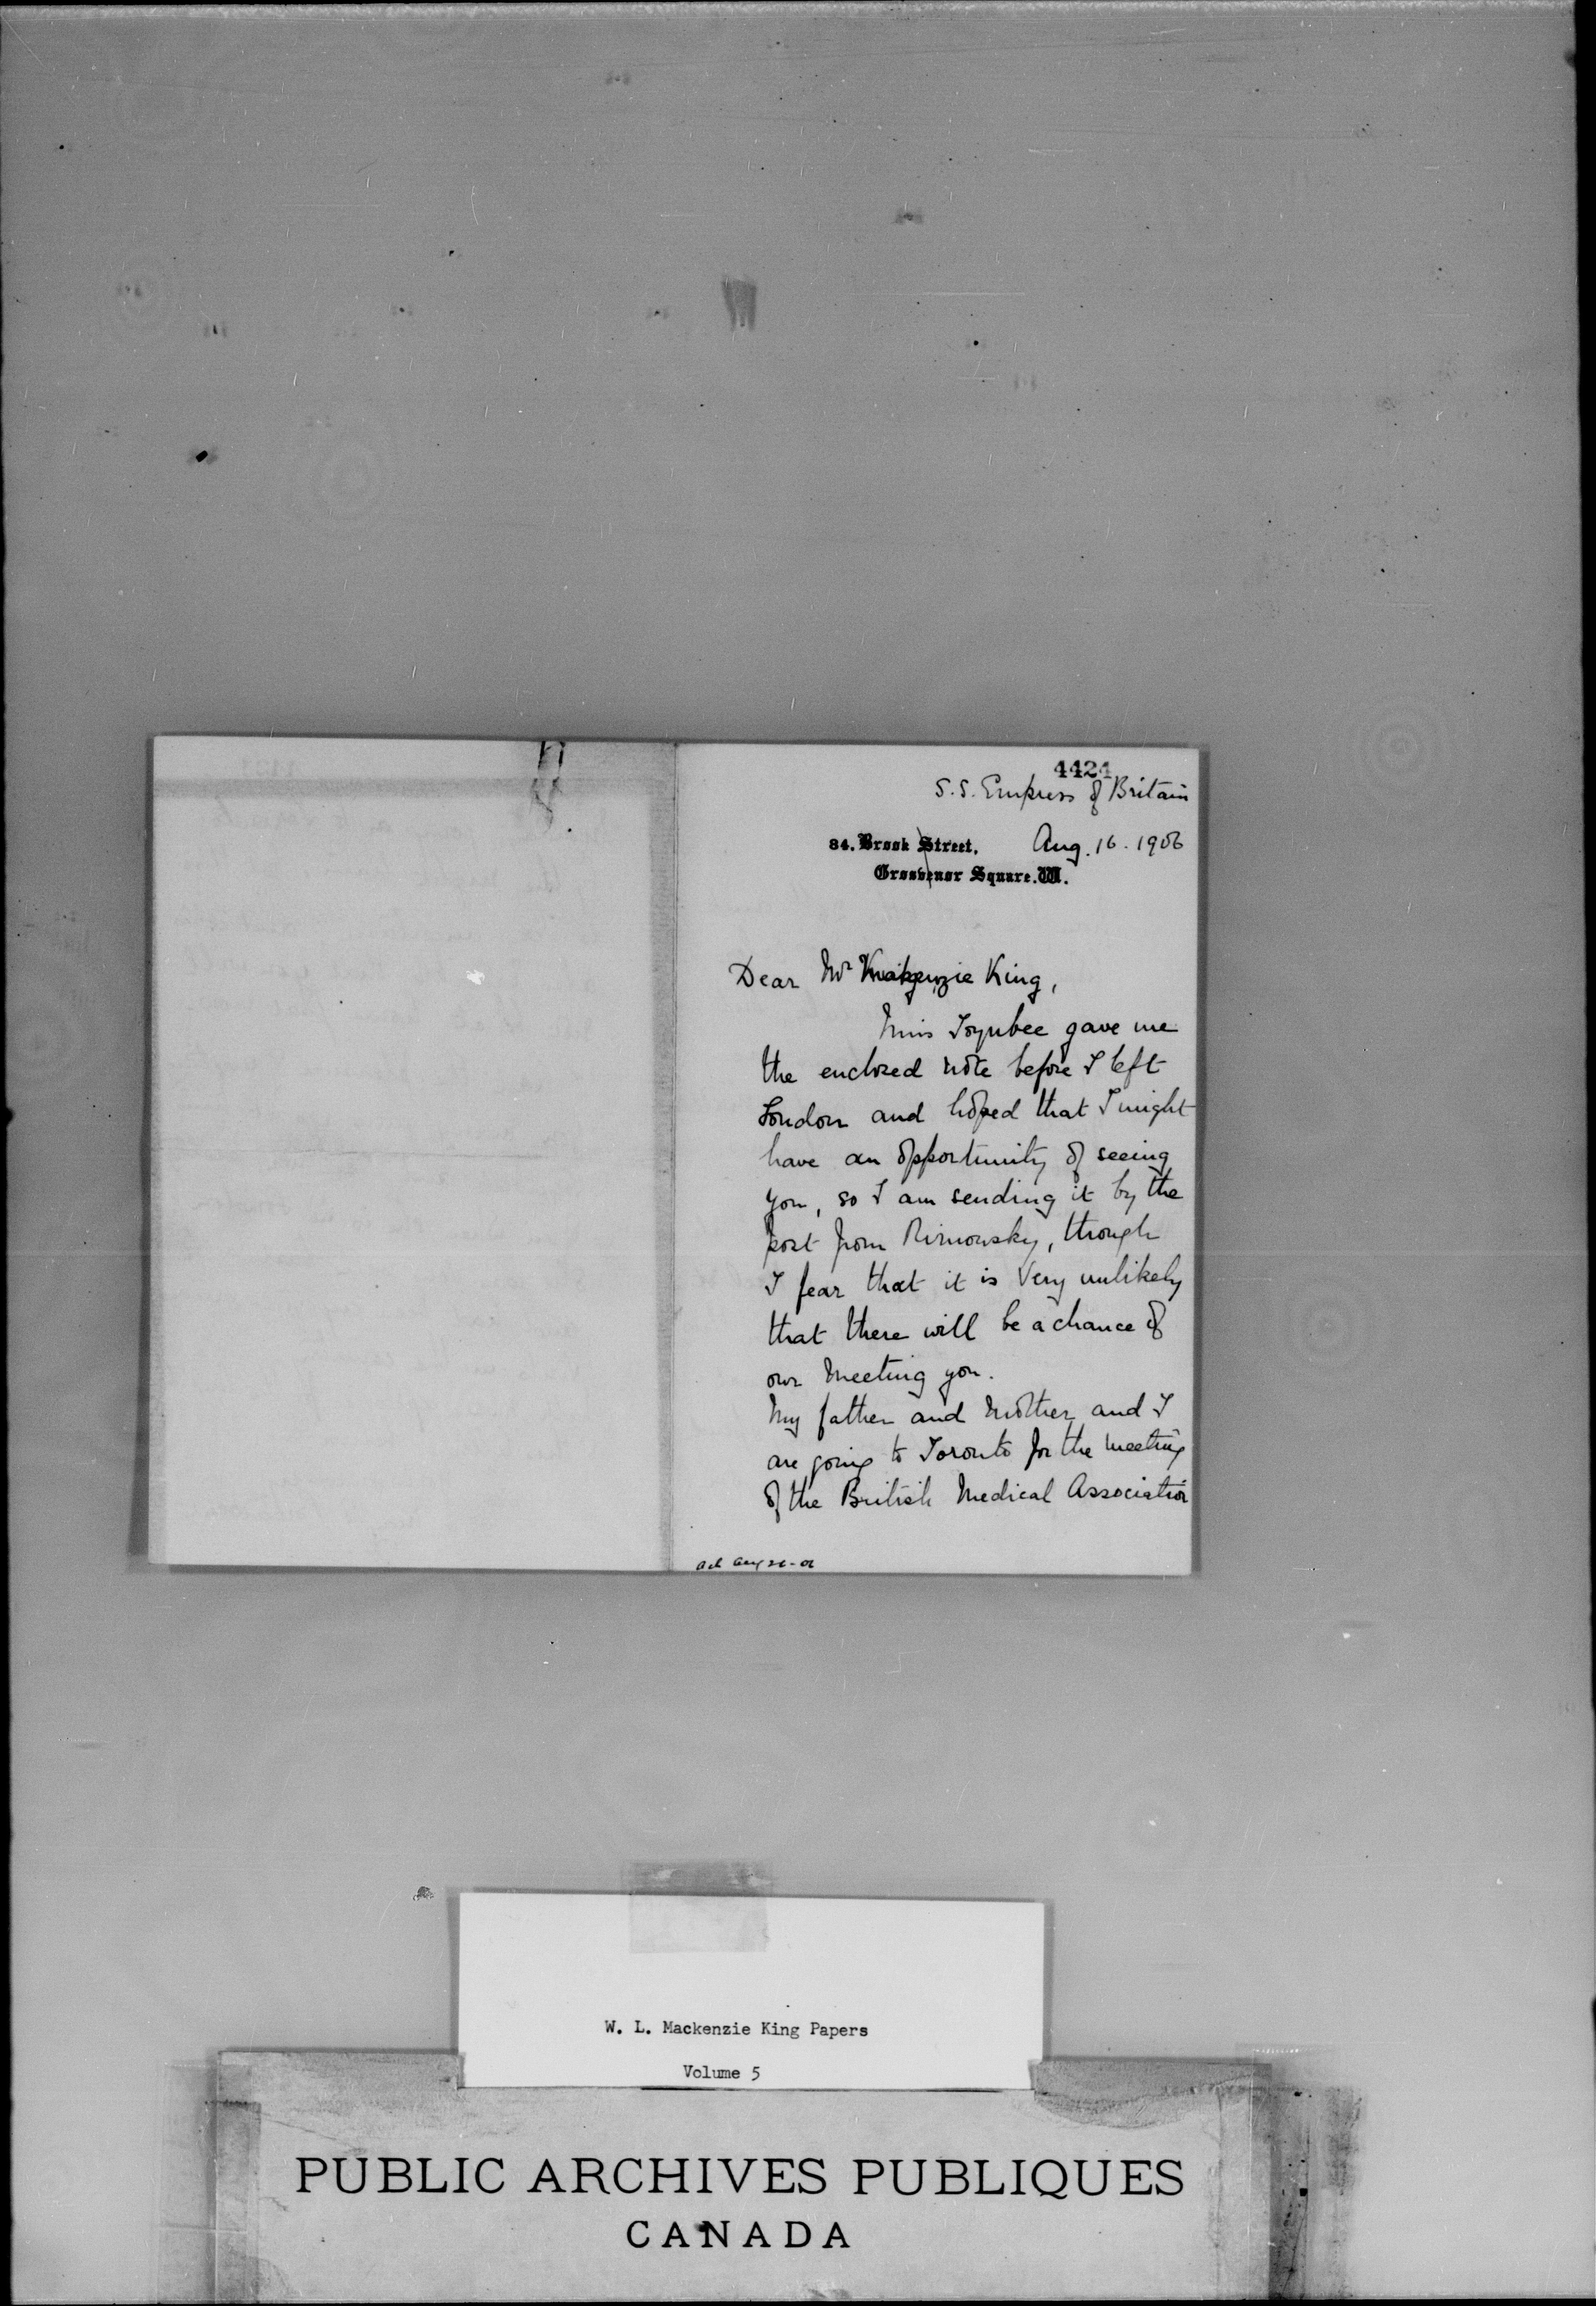 4424
S.S. Empress of Britain
84. Brook Street,
Aug. 16. 1906
Grosvenor Square. W.
Dear Mr Mackenzie King,
Miss Toynbee gave me
the enclosed note before I left
London and hoped that I might
have an opportunity of seeing
you, so I am sending it by the
post from Rimowsky, though
I fear that it is very unlikely
that there will be a chance of
our meeting you.
My father and mother and I
are going to Toronto for the meeting
of the British Medical Association
W. L. Mackenzie King Papers
Volume 5
PUBLIC ARCHIVES PUBLIQUES
CANADA